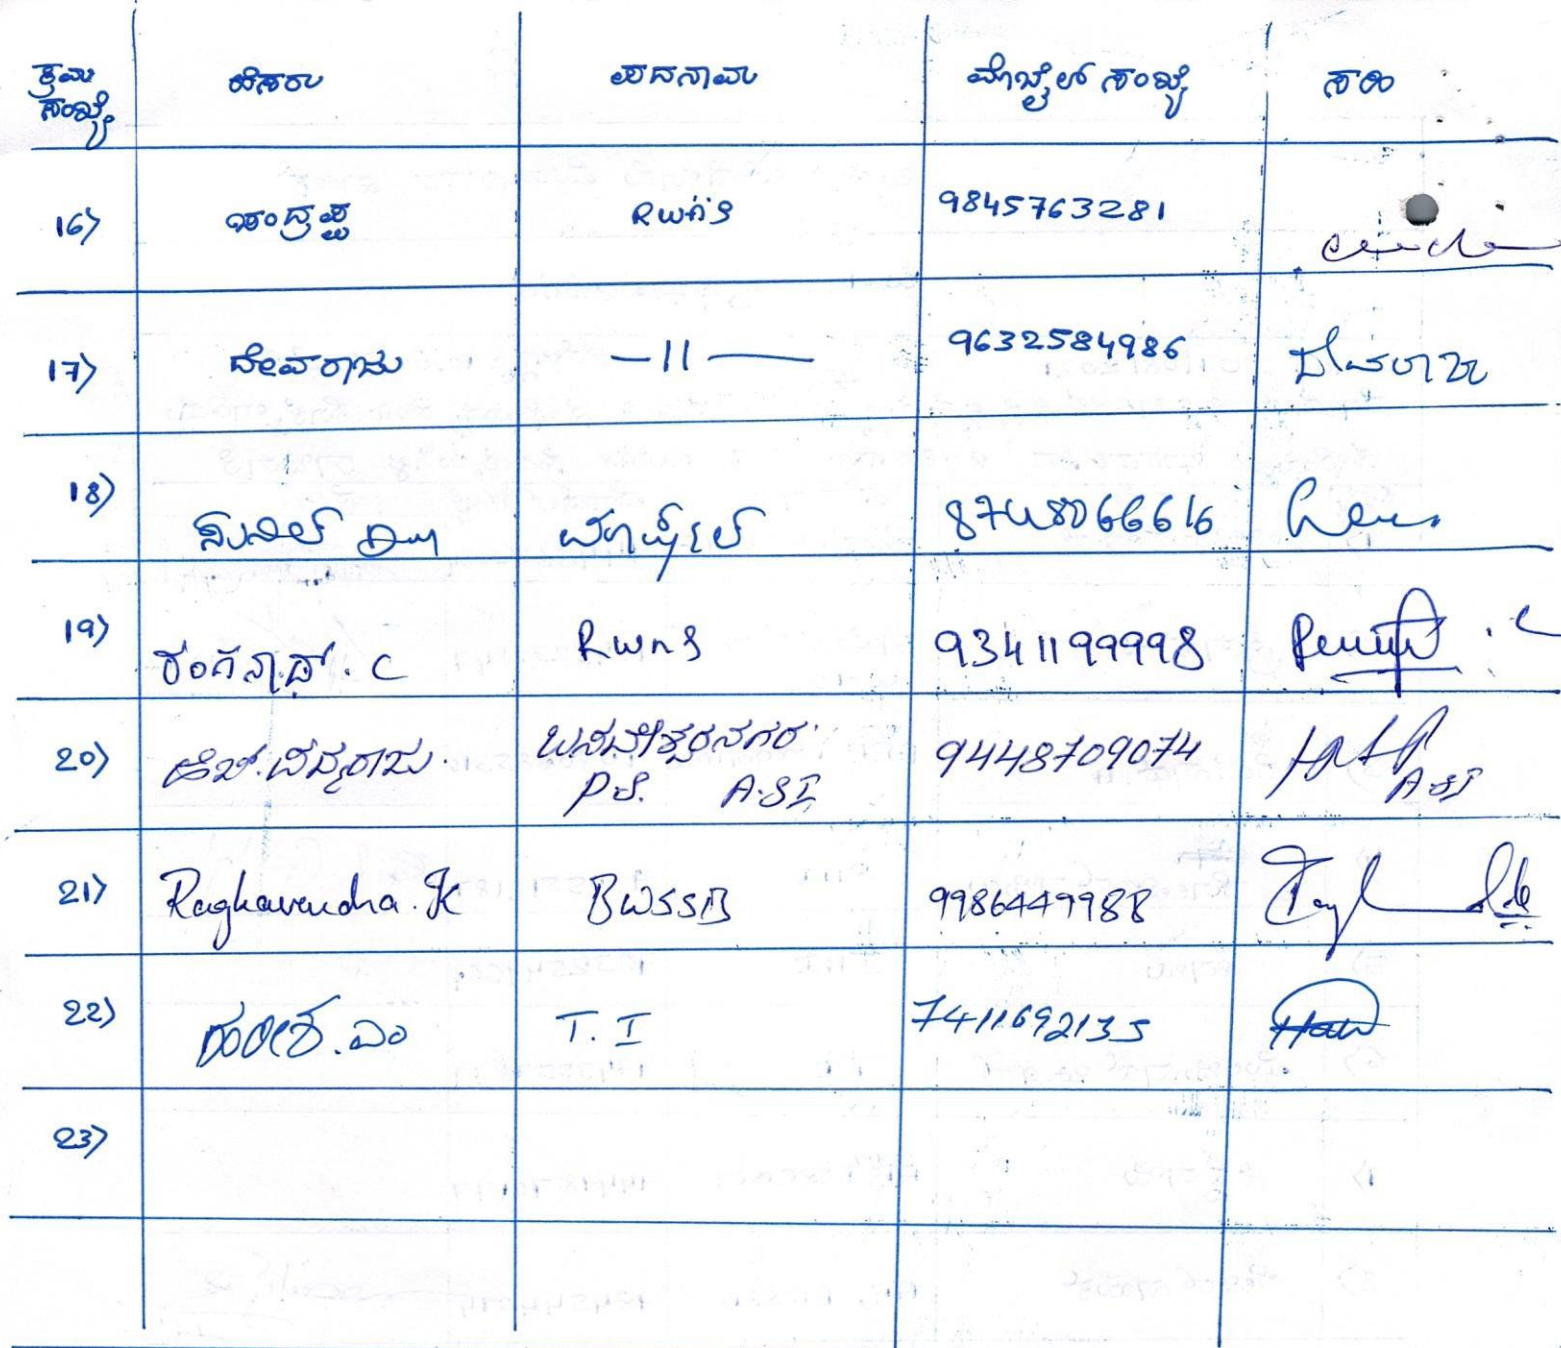 ಕ್ರಮ ಸಂಖ್ಯೆ ಹೆಸರು ಪದನಾಮ ಮೊಬೈಲ್ ಸಂಖ್ಯೆ ಸಹಿ
16) ಚಂದ್ರಪ್ಪ 9845763281
17) ದೇವರಾಜು —11— 9632584986 ದೇವರಾಜು
18) ಸುನಿಲ್ 8748066616
19) ರಂಗನಾಥ್. C 9341199998
20) ಹೆಚ್. ಪದ್ಮರಾಜು. ಬಸವೇಶ್ವರನಗರ 9448709074
P.S. A.S.I A.S.I
21) Raghavendra. K BWSSB 9986449988
22) ಹರೀಶ. ಎಂ T. I 7411692135
23)